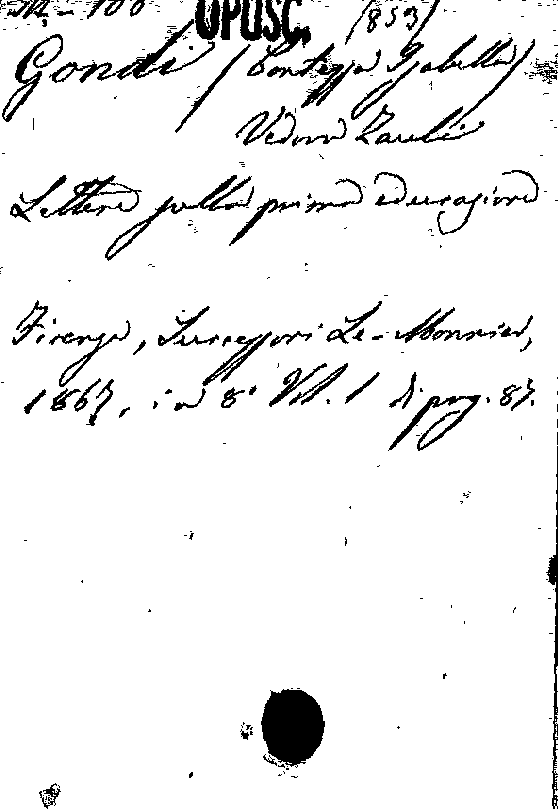 OPUSC. (853)
Gondi (Contessa Isabella)
Vedova Zauli
Lettere sulla prima educazione
Firenze, Successori Le-Monnier,
1867, in 8° Vol. 1 di pag. 87.